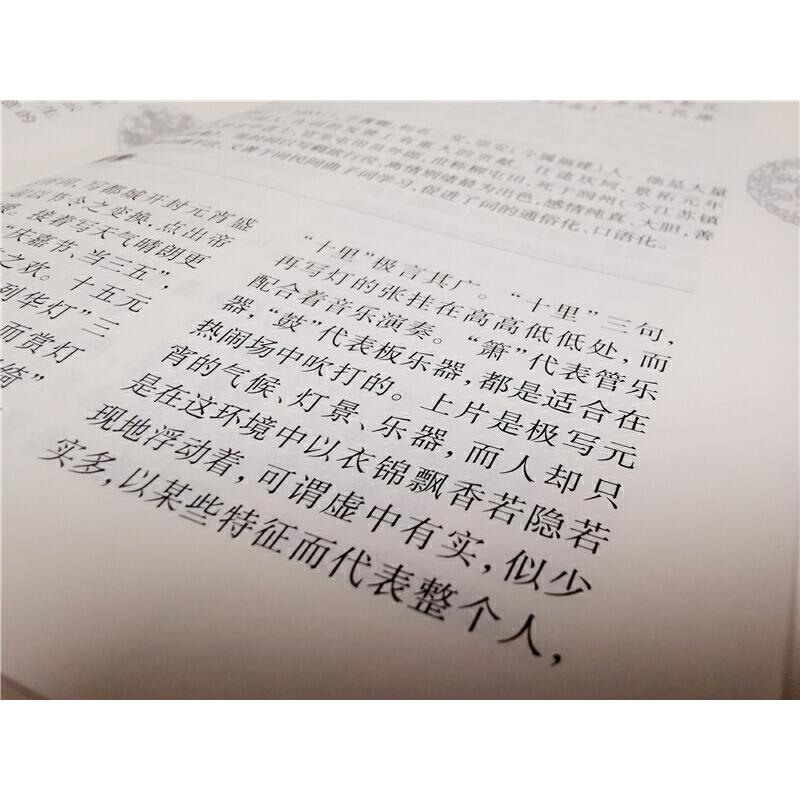 人。他是大量
词的发展上有重大的贡献。仕途坎坷,景祐元年
官至屯田员外郎,世称柳屯田,死于润州(今江苏镇
羁旅行役,离情别绪最为出色,感情纯真、大胆,善
又善于向民间曲子词学习,促进了词的通俗化、口语化。
写都城开封元宵盛
以节令之变换,点出帝
接着写天气晴朗更
“庆嘉节、当三五”,
之欢。十五元
列华灯”三
而赏灯
绮”
“十里”极言其广。“十里”三句,
再写灯的张挂在高高低低处,而
配合着音乐演奏。“箫”代表管乐
器,“鼓”代表板乐器,都是适合在
热闹场中吹打的。上片是极写元
宵的气候、灯景、乐器,而人却只
是在这环境中以衣锦飘香若隐若
现地浮动着,可谓虚中有实,似少
实多,以某些特征而代表整个人,